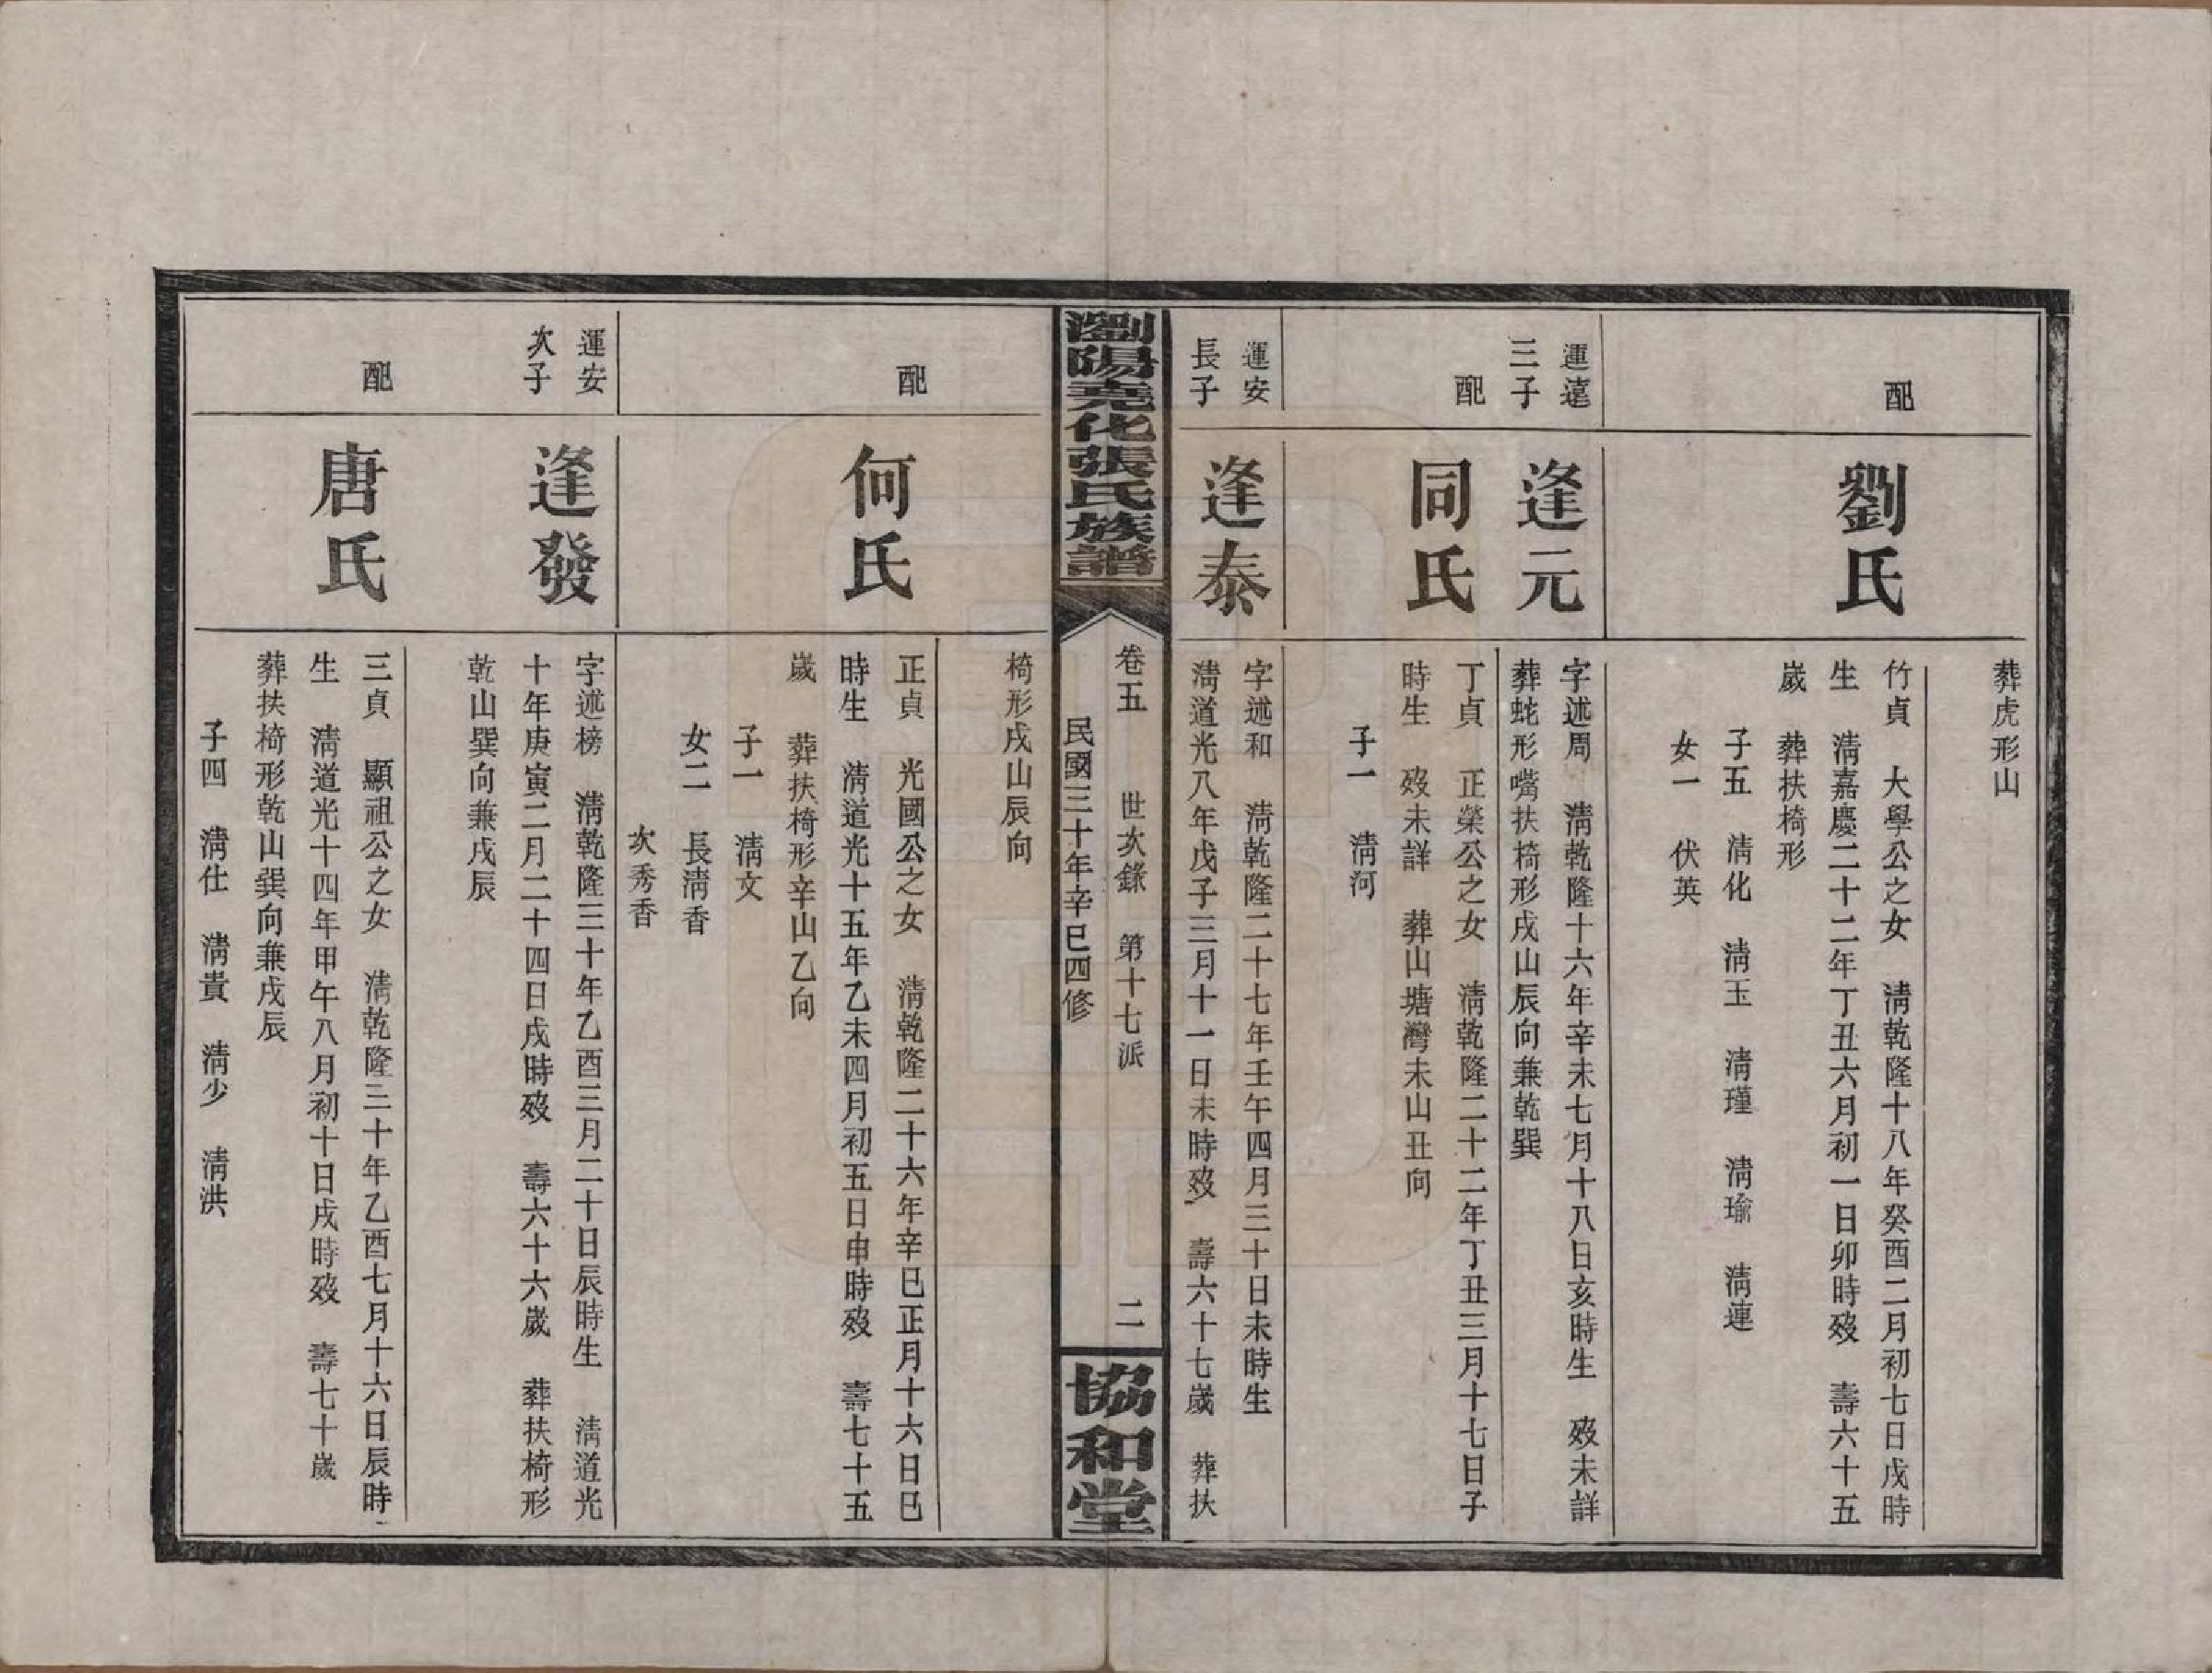 葬虎形山
配
劉氏
竹貞　大學公之女　淸乾隆十八年癸酉二月初七日戌時
生　淸嘉慶二十二年丁丑六月初一日卯時歿　壽六十五
歲　葬扶椅形
子五　淸化　淸玉　淸瑾　淸瑜　淸連
女一　伏英
運遠
三子
逢元
字述周　淸乾隆十六年辛未七月十八日亥時生　歿未詳
葬蛇形嘴扶椅形戌山辰向兼乾巽
配
同氏
丁貞　正榮公之女　淸乾隆二十二年丁丑三月十七日子
時生　歿未詳　葬山塘灣未山丑向
子一　淸河
運安
長子
逢泰
字述和　淸乾隆二十七年壬午四月三十日未時生
淸道光八年戊子三月十一日未時歿　壽六十七歲　葬扶
瀏陽堯化張氏族譜
卷五　世次錄　第十七派　二
民國三十年辛巳四修
協和堂
椅形戌山辰向
配
何氏
正貞　光國公之女　淸乾隆二十六年辛巳正月十六日巳
時生　淸道光十五年乙未四月初五日申時歿　壽七十五
歲　葬扶椅形辛山乙向
子一　淸文
女二　長淸香
次秀香
運安
次子
逢發
字述榜　淸乾隆三十年乙酉三月二十日辰時生　淸道光
十年庚寅二月二十四日戌時歿　壽六十六歲　葬扶椅形
乾山巽向兼戌辰
配
唐氏
三貞　顯祖公之女　淸乾隆三十年乙酉七月十六日辰時
生　淸道光十四年甲午八月初十日戌時歿　壽七十歲
葬扶椅形乾山巽向兼戌辰
子四　淸仕　淸貴　淸少　淸洪